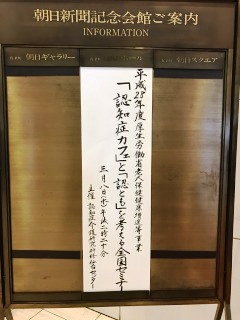 朝日新聞記念会館ご案内
INFORMATION
朝日ギャラリー
朝日スクエア
平成28年度厚生労働省老人保健健康増進等事業
「認知症カフェ」と「認とも」を考える全国セミナー
三月八日(水)午後二時二十分
主催 認知症介護研究・研修仙台センター